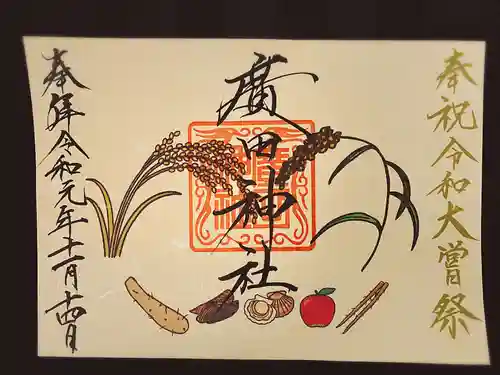 奉祝令和大嘗祭
廣田神社
奉拝令和元年十一月十四日